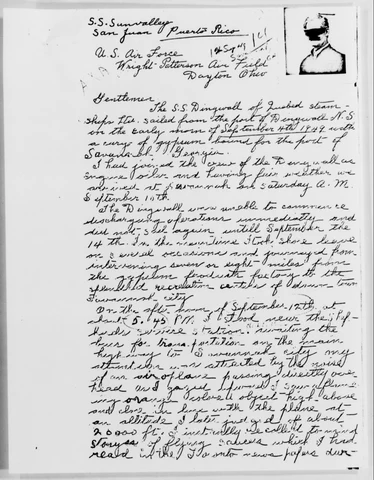 S.S. Sunvalley
San Juan Puerto Rico
U.S. Air Force
Wright-Patterson Air Field
Dayton Ohio
Gentlemen
The S.S. Dingwall of Quebec steam-
ships Ltd. sailed from the port of Dingwall N.S
on the early morn of September 4th 1949 with
a cargo of gypsum bound for the port of
Savannah, Georgia.
I had joined the crew of the Dingwall as
Engine oiler and having fair weather we
arrived at Savannah on Saturday A.M.
September 10th
The Dingwall was unable to commence
discharging operations immediately and
did not sail again untill September the
14th. In the meantime I took shore leave
on several occasions and journeyed from
intervening seven or eight miles from
the gypsum products factory to the
recreation centre of down town
Savannah city
On the afternoon of September 12th at
about 5.45 PM. I stood near the
service station awaiting the
bus for transportation on the main
highway to Savannah city my
attention was attracted by the noise
of an aeroplane passing directly over
head as I gazed upward I saw a flame-
ing orange colored object high above
and in line with the plane at
an altitude I later judged of about
20000 ft. I instantly recalled to mind
storys of flying saucers which I had
read in the Toronto news papers dur-